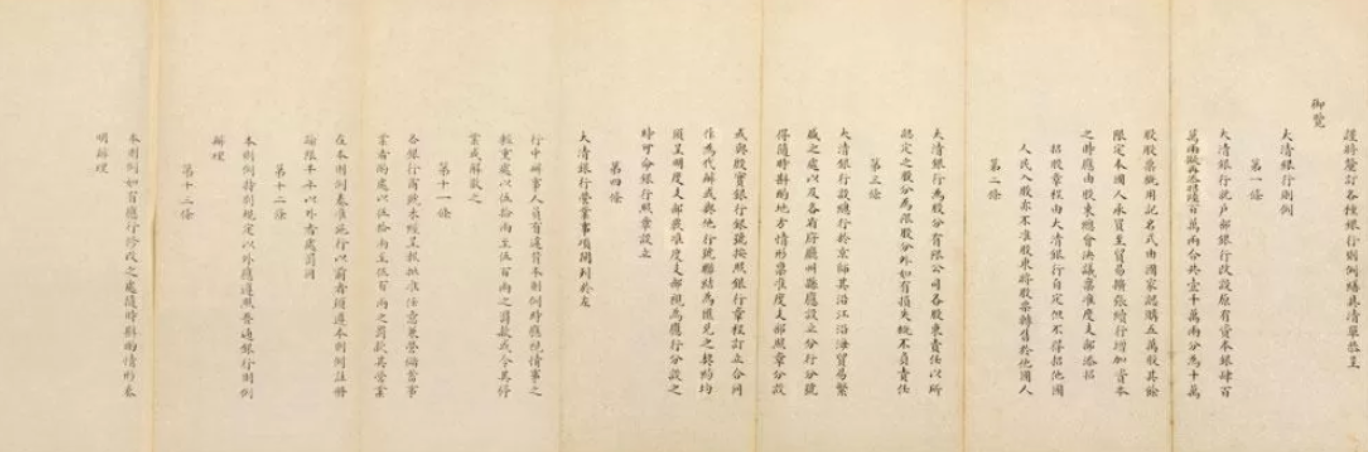 謹將釐訂各種銀行則例繕具清單恭呈
御覽
大清銀行則例
第一條
大清銀行就戶部銀行改設原有資本銀肆百
萬兩茲再添招陸百萬兩合共壹千萬兩分為十萬
股股票概用記名式由國家認購五萬股其餘
限定本國人承買至貿易擴張續行增加資本
之時應由股東總會決議稟准度支部添招
招股章程由大清銀行自定但不得招他國
人民入股亦不准股東將股票轉售於他國人
第二條
大清銀行為股分有限公司各股東責任以所
認定之股分為限股分外如有損失概不負責任
第三條
大清銀行設總行於京師其沿江沿海貿易繁
盛之處以及各省府廳州縣應設立分行分號
得隨時斟酌地方情形稟准度支部照章分設
或與殷實銀行銀號按照銀行章程訂立合同
作為代辦或與他行號聯結為匯兌之契約均
須呈明度支部裁准度支部視為應行分設之
時可命銀行照章設立
第四條
大清銀行營業事項開列於左
行中辦事人員有違背本則例時應視情事之
輕重處以伍拾兩至伍百兩之罰款或令其停
業或解散之
第十一條
各銀行商號未經呈報批准任意兼營儲蓄事
業者酌處以伍拾兩至伍百兩之罰款其營業
在本則例奏准施行以前者須遵本則例註冊
踰限半年以外者處罰同
第十二條
本則例特別規定以外應遵照普通銀行則例
辦理
第十三條
本則例如有應行修改之處隨時斟酌情形奏
明辦理